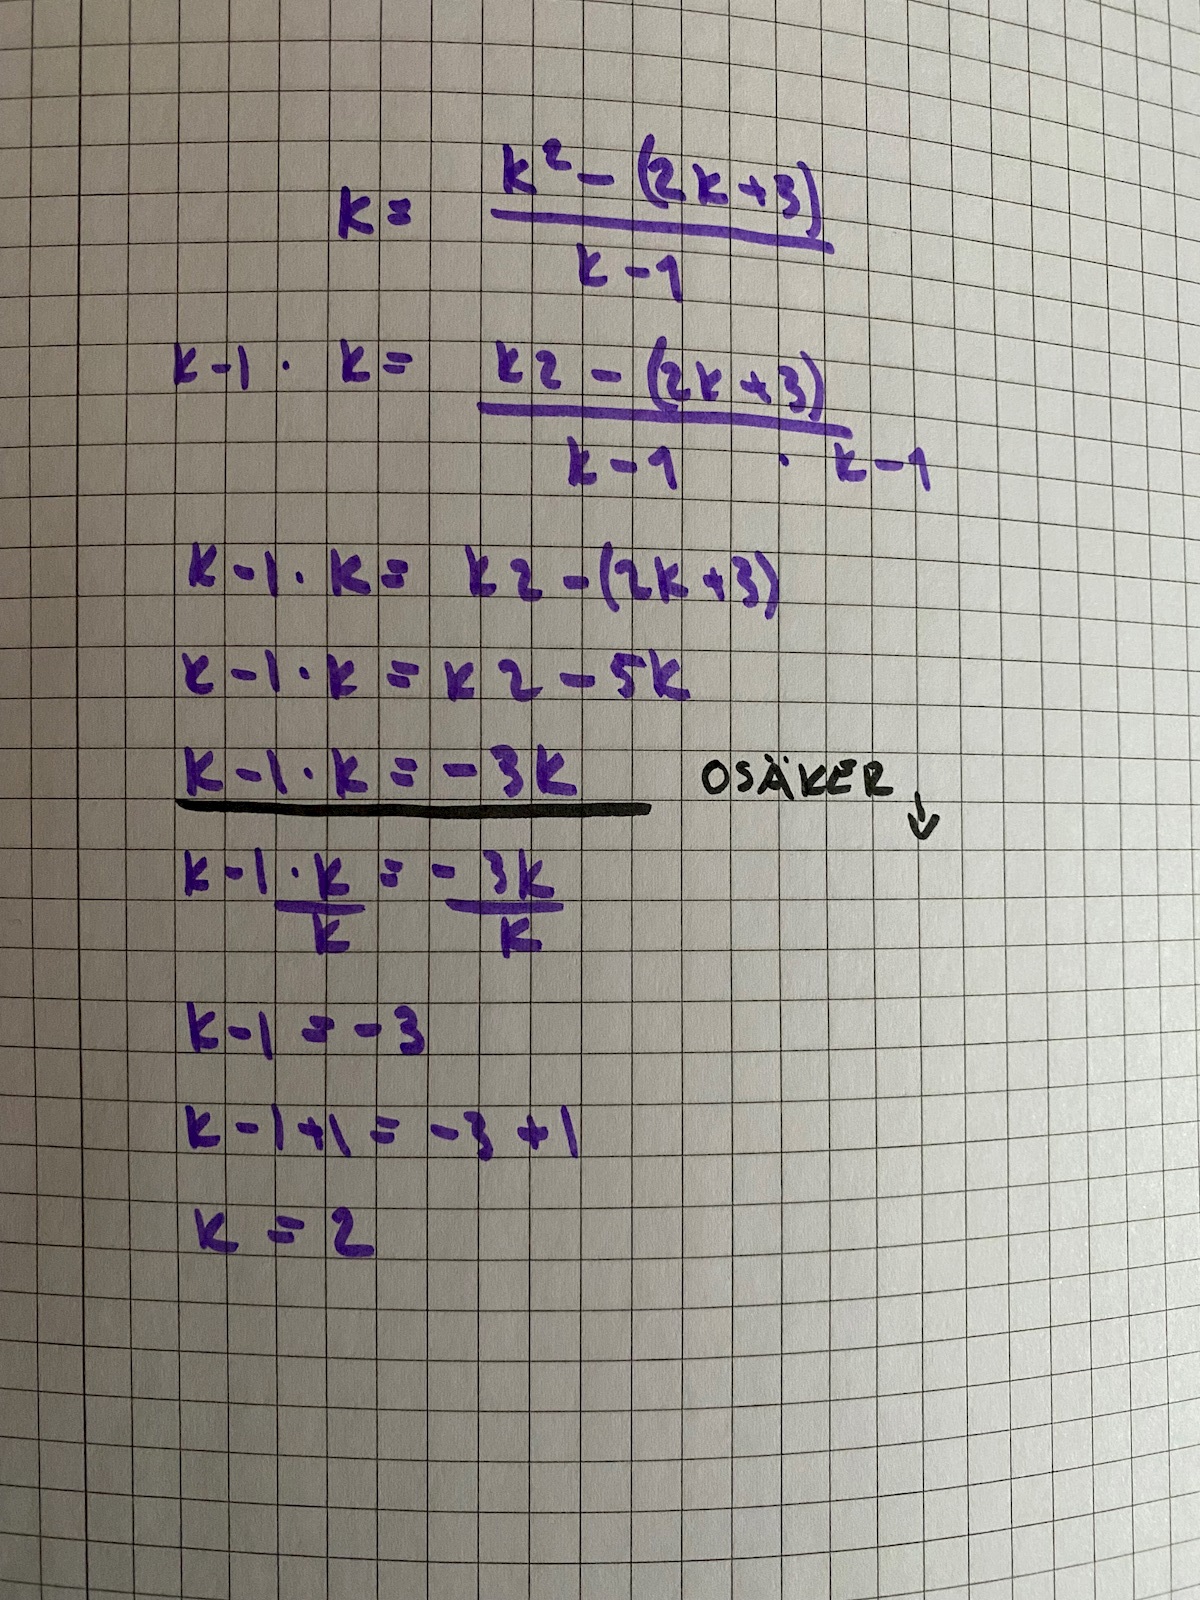 k = k² - (2k+3)
k - 1
k-1 · k = k2 - (2k+3)
k - 1 · k - 1
k - 1 · k = k2 - (2k+3)
k - 1 · k = k2 - 5k
k - 1 · k = - 3k OSÄKER ↓
k - 1 · k = - 3k
k k
k - 1 = - 3
k - 1 + 1 = - 3 + 1
k = 2